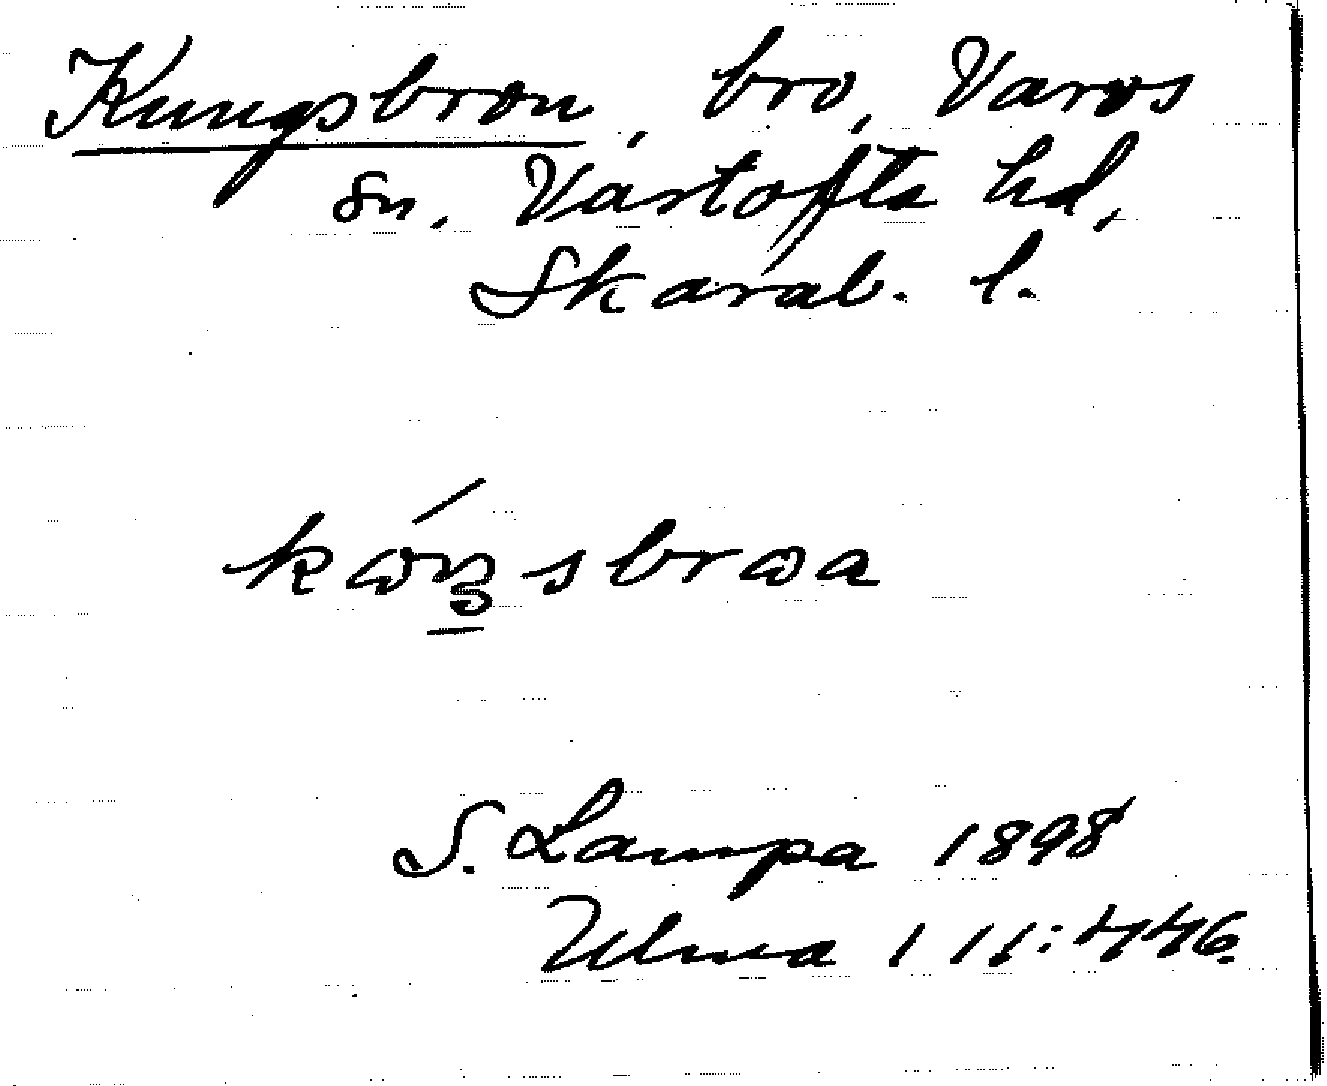 Kungsbron, bro, Varvs
sn. Vartofta hd,
Skarab. l.
S. Lampa 1898
Ulma 111:446.